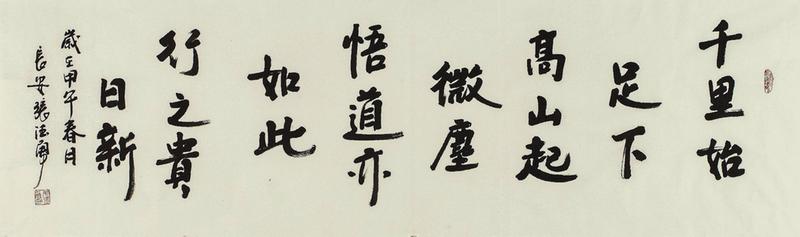 千里始
足下
高山起
微塵
悟道亦
如此
行之貴
日新
歲在甲午春月
長安張